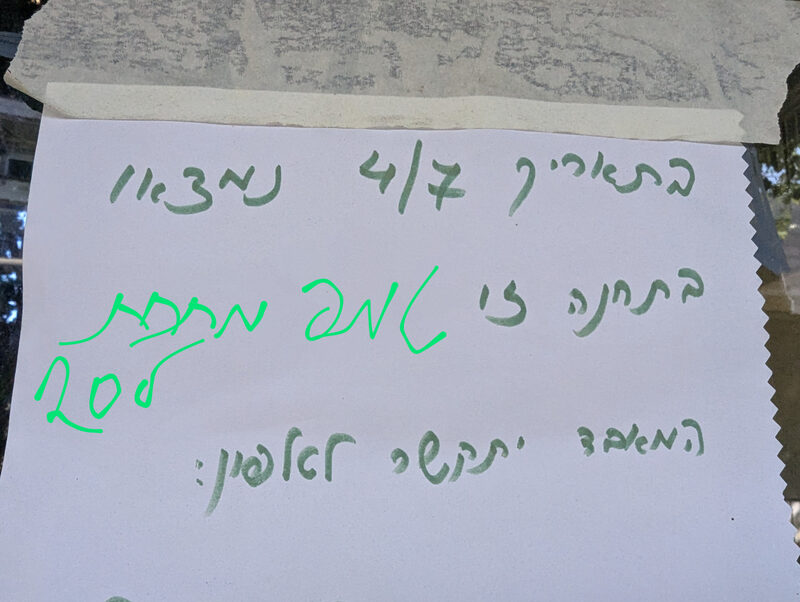 בתאריך 4/7 נמצאו
בתחנה זו טמפ מתחת
ל20
המאבד יתקשר לאלפון: